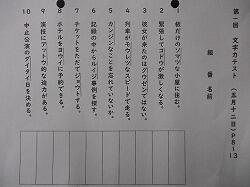 第一回 文字力テスト (五月十二日) P8-13
組 番 名前
1 板だけのソマツな小屋に住む。
2 緊張してコドウが激しくなる。
3 彼女が来たのはグウゼンではない。
4 列車がモウレツなスピードで走る。
5 カンジンなことを忘れていないか。
6 記録の中からルイジ事例を探す。
7 チケットをただでジョウトする。
8 ホテルをヨウイに予約できる。
9 演技にアットウ的な迫力がある。
10 中止公演のダイタイ日を決める。